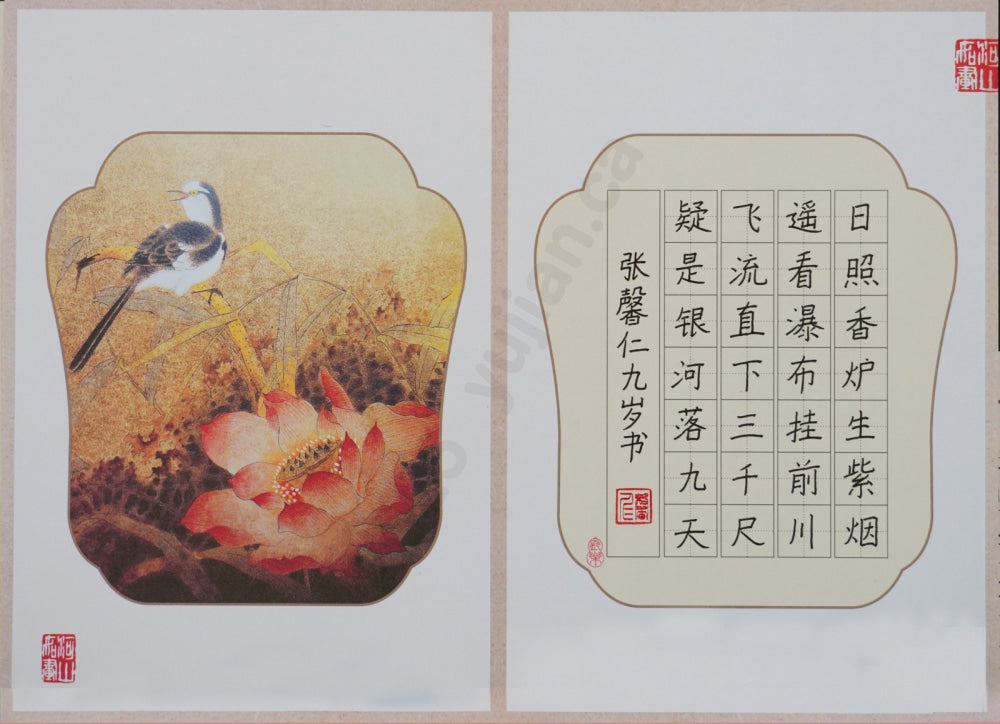 日照香炉生紫烟
遥看瀑布挂前川
飞流直下三千尺
疑是银河落九天
张馨仁九岁书
yujian.ca